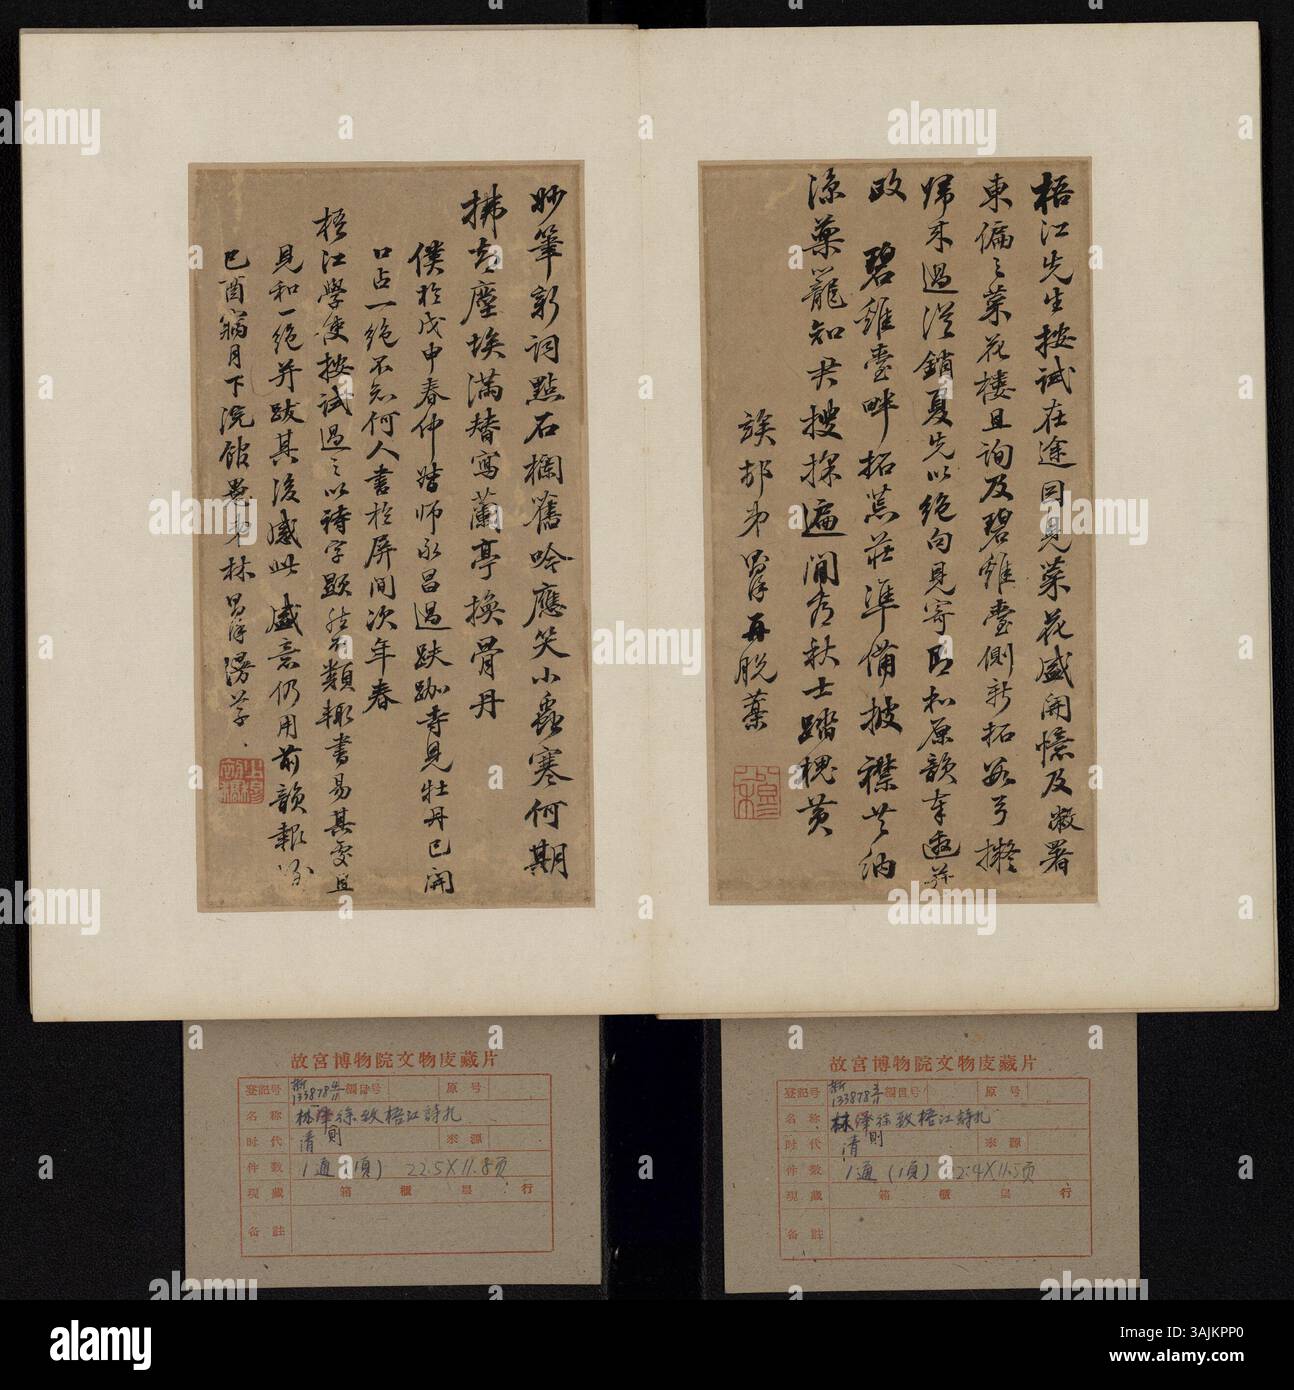 梧江先生按試在途因見菜花盛開憶及敝署
東偏之菜花樓且詢及碧雞臺側新拓數弓擬
歸來過從銷夏先以絕句見寄即和原韻奉逊并
政　碧雞臺畔拓荒莊準備披襟共納
涼藥籠知君搜探遍閒看秋士踏槐黃
族邨弟再脫藁
妙筆新詞點石欄舊吟應笑小蟲寒何期
拂去塵埃滿替寫蘭亭換骨丹
僕於戊申春仲踏師永昌過趺跏寺見牡丹已開
口占一絕不知何人書於屏間次年春
梧江學使按試過之以詩字題然不類輒書易其壁且
見和一絕并跋其後感此盛意仍用前韻報
己酉寎月下浣館愚弟林漫草
故宮博物院文物庋藏片
登記号 新133878 編目号 原号
名称 林澤徐致梧江詩札
时代 清 則 來源
件数 1通(1頁) 22.5×11.8
現藏 箱 櫃 层 行
备註
故宮博物院文物庋藏片
登記号 新133878 編目号 原号
名称 林澤徐致梧江詩札
时代 清 則 來源
件数 1通(1頁) 22.4×11.5
現藏 箱 櫃 层 行
备註
alamy
Image ID: 3AJKPP0
www.alamy.com